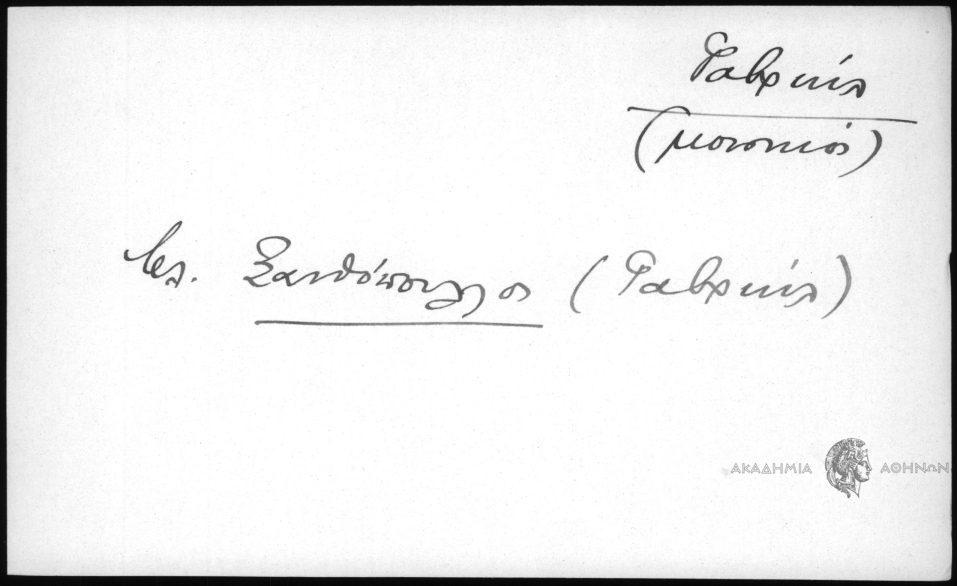 Γαβριήλ
(μουσικός)
βλ. Ξανθόπουλος (Γαβριήλ)
ΑΚΑΔΗΜΙΑ ΑΘΗΝΩΝ